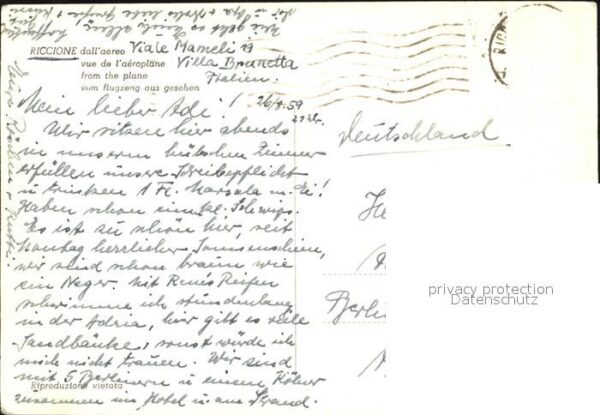 RICCIONE dall'aereo Viale Mameli 19
vue de l'aéroplane Villa Brunetta
from the plane Italien.
vom flugzeng aus gesehen
Mein lieber Adi! 26/8.59
21 Uhr.
Wir sitzen hier abends
in unserm hübschen Zimmer
erfüllen unsere Schreibepflicht
u. trinken 1 Fl. Marsala m. Ei!
Haben schon einen Schwips.
Es ist zu schön hier, seit
Montag herrlicher Sonnenschein,
wir sind schon braun wie
ein Neger. Mit Renés Reifen
schwimme ich stundenlang
in der Adria, hier gibt es viele
Sandbänke, sonst würde ich
mich nicht trauen. Wir sind
mit 5 Berlinern u. einem Kölner
zusammen im Hotel u. am Strand.
Riproduzione vietata
Deutschland
He
Berlin
privacy protection
Datenschutz